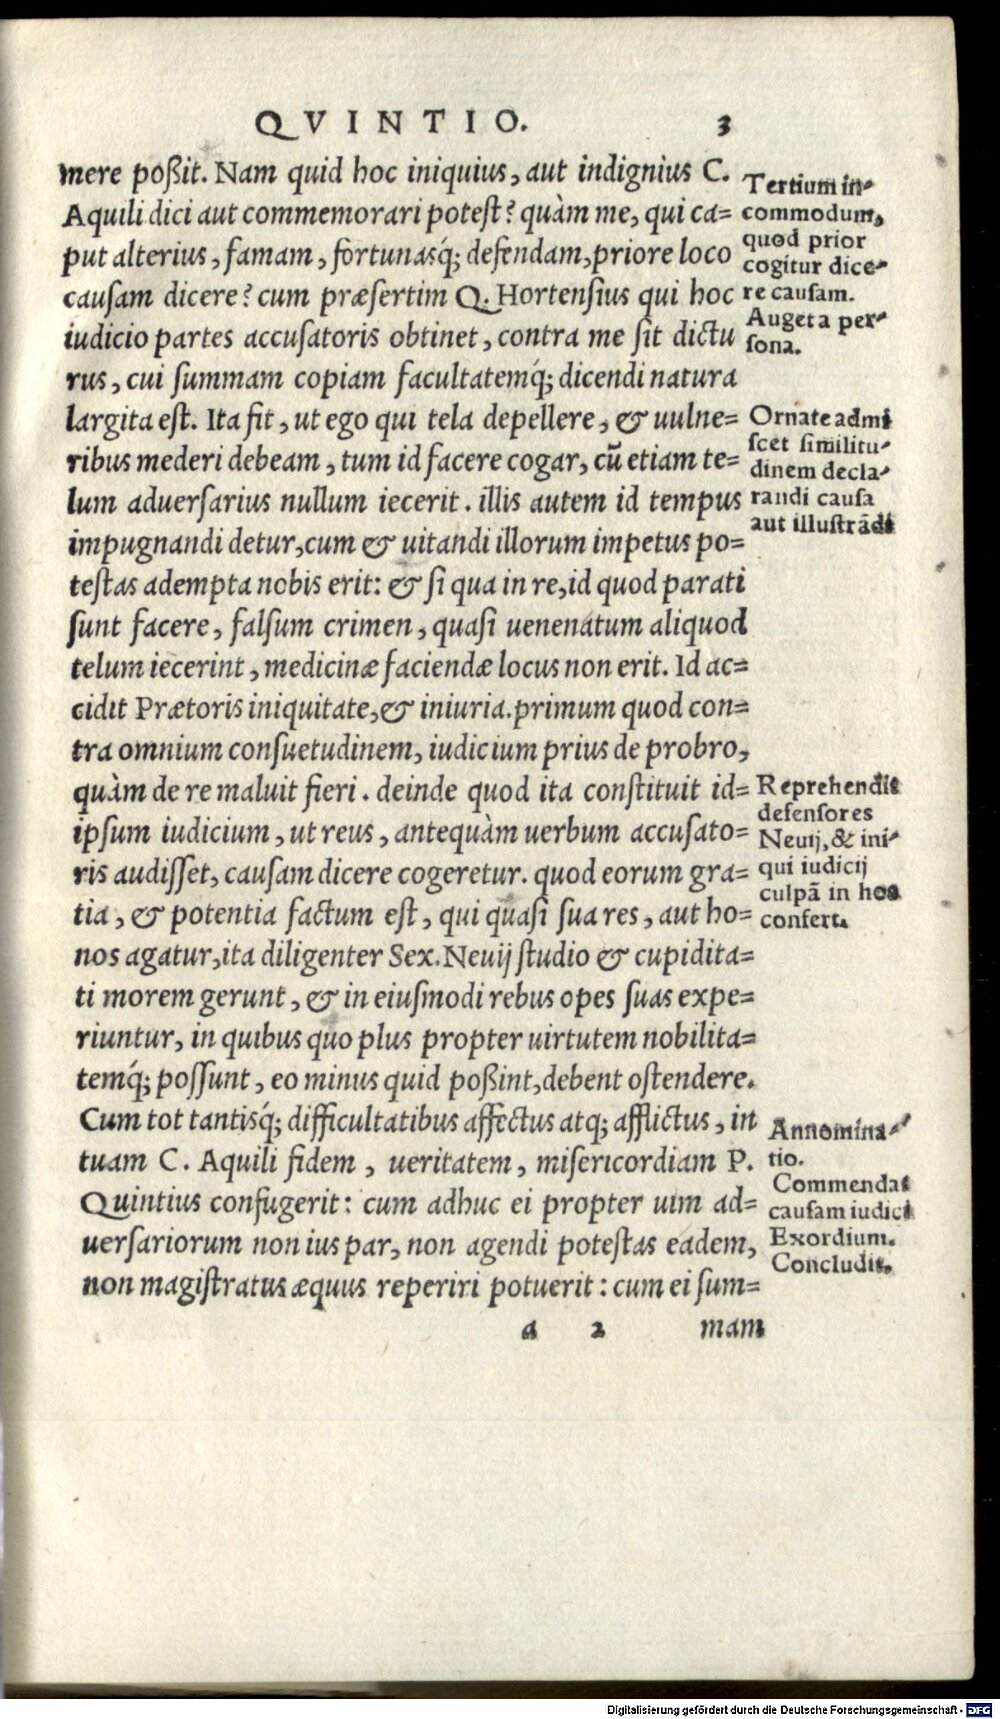 QVINTIO. 3
mere poßit. Nam quid hoc iniquius, aut indignius C.
Aquili dici aut commemorari potest? quàm me, qui ca=
put alterius, famam, fortunasq́; defendam, priore loco
causam dicere? cum præsertim Q. Hortensius qui hoc
iudicio partes accusatoris obtinet, contra me sit dictu
rus, cui summam copiam facultatemq́; dicendi natura
largita est. Ita fit, ut ego qui tela depellere, & uulne=
ribus mederi debeam, tum id facere cogar, cũ etiam te=
lum aduersarius nullum iecerit. illis autem id tempus
impugnandi detur, cum & uitandi illorum impetus po=
testas adempta nobis erit: & si qua in re, id quod parati
sunt facere, falsum crimen, quasi uenenatum aliquod
telum iecerint, medicinæ faciendæ locus non erit. Id ac=
cidit Prætoris iniquitate, & iniuria. primum quod con=
tra omnium consuetudinem, iudicium prius de probro,
quàm de re maluit fieri. deinde quod ita constituit id=
ipsum iudicium, ut reus, antequàm uerbum accusato=
ris audisset, causam dicere cogeretur. quod eorum gra=
tia, & potentia factum est, qui quasi sua res, aut ho=
nos agatur, ita diligenter Sex. Neuij studio & cupidita=
ti morem gerunt, & in eiusmodi rebus opes suas expe=
riuntur, in quibus quo plus propter uirtutem nobilita=
temq́; possunt, eo minus quid poßint, debent ostendere.
Cum tot tantisq́; difficultatibus affectus atq; afflictus, in
tuam C. Aquili fidem, ueritatem, misericordiam P.
Quintius confugerit: cum adhuc ei propter uim ad=
uersariorum non ius par, non agendi potestas eadem,
non magistratus æquus reperiri potuerit: cum ei sum=
a 2 mam
Tertium in-
commodum,
quod prior
cogitur dice-
re causam.
Auget a per-
sona.
Ornate admi
scet similitu-
dinem decla-
randi causa
aut illustrãdi
Reprehendit
defensores
Neuij, & ini-
qui iudicij
culpã in hos
confert.
Annomina-
tio.
Commendat
causam iudici
Exordium.
Concludit.
Digitalisierung gefördert durch die Deutsche Forschungsgemeinschaft - DFG